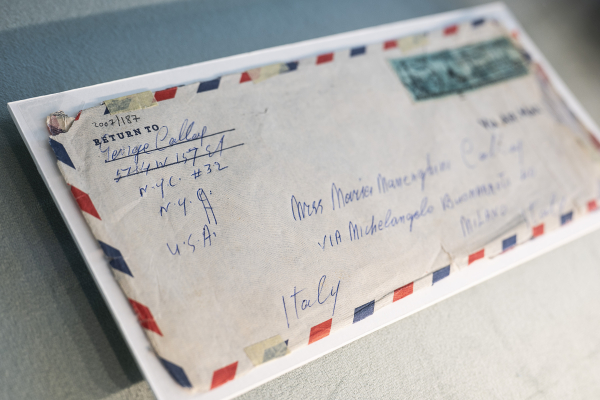 2007/187
RETURN TO
George Callas
W 157 St
N.Y.C. #32
N.Y.
U.S.A.
VIA AIR MAIL
Mrss Maria Maneghini Callas
VIA Michelangelo Buonarroti
MILANO
Italy